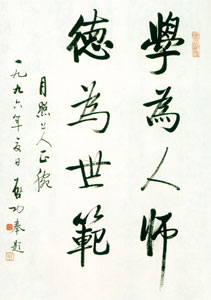 學為人師
德為世範
月照上人正腕
一九九六年夏日 啟功奉題